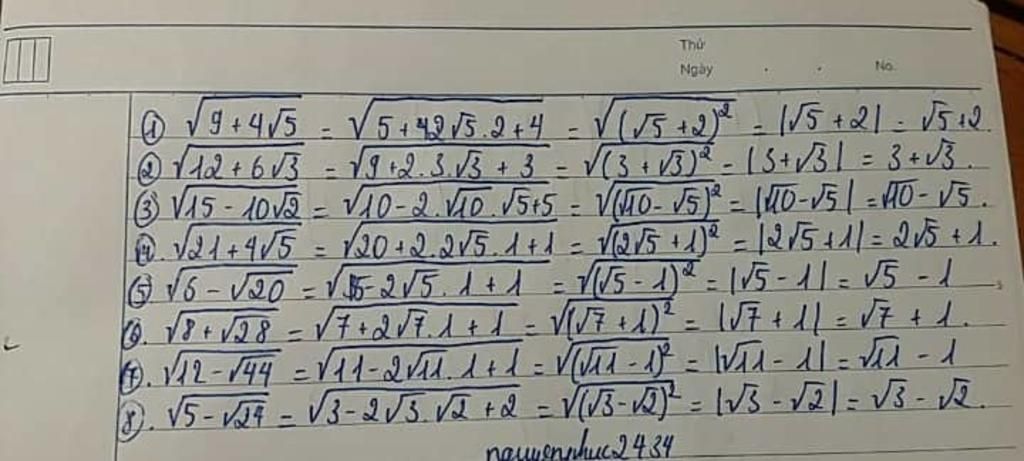 Thứ
Ngày . . No.
① √(9 + 4√5) = √(5 + 2√5.2 + 4) = √((√5 + 2)²) = |√5 + 2| = √5 + 2.
② √(12 + 6√3) = √(9 + 2.3.√3 + 3) = √((3 + √3)²) = |3 + √3| = 3 + √3.
③ √(15 - 10√2) = √(10 - 2.√10.√5 + 5) = √((√10 - √5)²) = |√10 - √5| = √10 - √5.
④. √(21 + 4√5) = √(20 + 2.2√5.1 + 1) = √((2√5 + 1)²) = |2√5 + 1| = 2√5 + 1.
⑤ √(6 - √20) = √(5 - 2√5.1 + 1) = √((√5 - 1)²) = |√5 - 1| = √5 - 1
⑥. √(8 + √28) = √(7 + 2√7.1 + 1) = √((√7 + 1)²) = |√7 + 1| = √7 + 1.
⑦. √(12 - √44) = √(11 - 2√11.1 + 1) = √((√11 - 1)²) = |√11 - 1| = √11 - 1
⑧. √(5 - √24) = √(3 - 2√3.√2 + 2) = √((√3 - √2)²) = |√3 - √2| = √3 - √2.
nguyenphuc2434